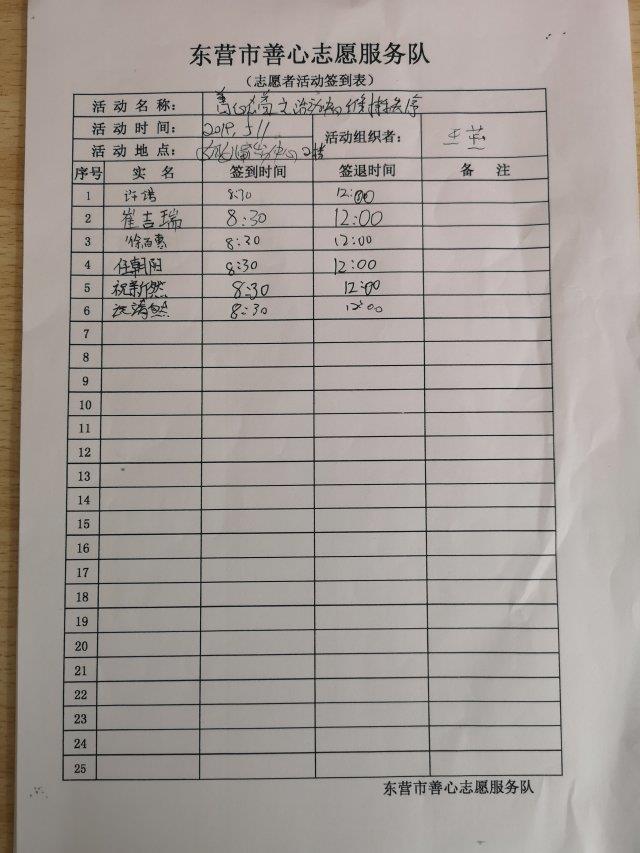 东营市善心志愿服务队
（志愿者活动签到表）
活动名称：
活动时间： 2019.5.11 活动组织者： 王
活动地点： 2楼
序号 实名 签到时间 签退时间 备注
1 许诺 8:30 12:00
2 崔吉瑞 8:30 12:00
3 徐百惠 8:30 12:00
4 任朝阳 8:30 12:00
5 祝新然 8:30 12:00
6 8:30 12:00
7
8
9
10
11
12
13
14
15
16
17
18
19
20
21
22
23
24
25
东营市善心志愿服务队